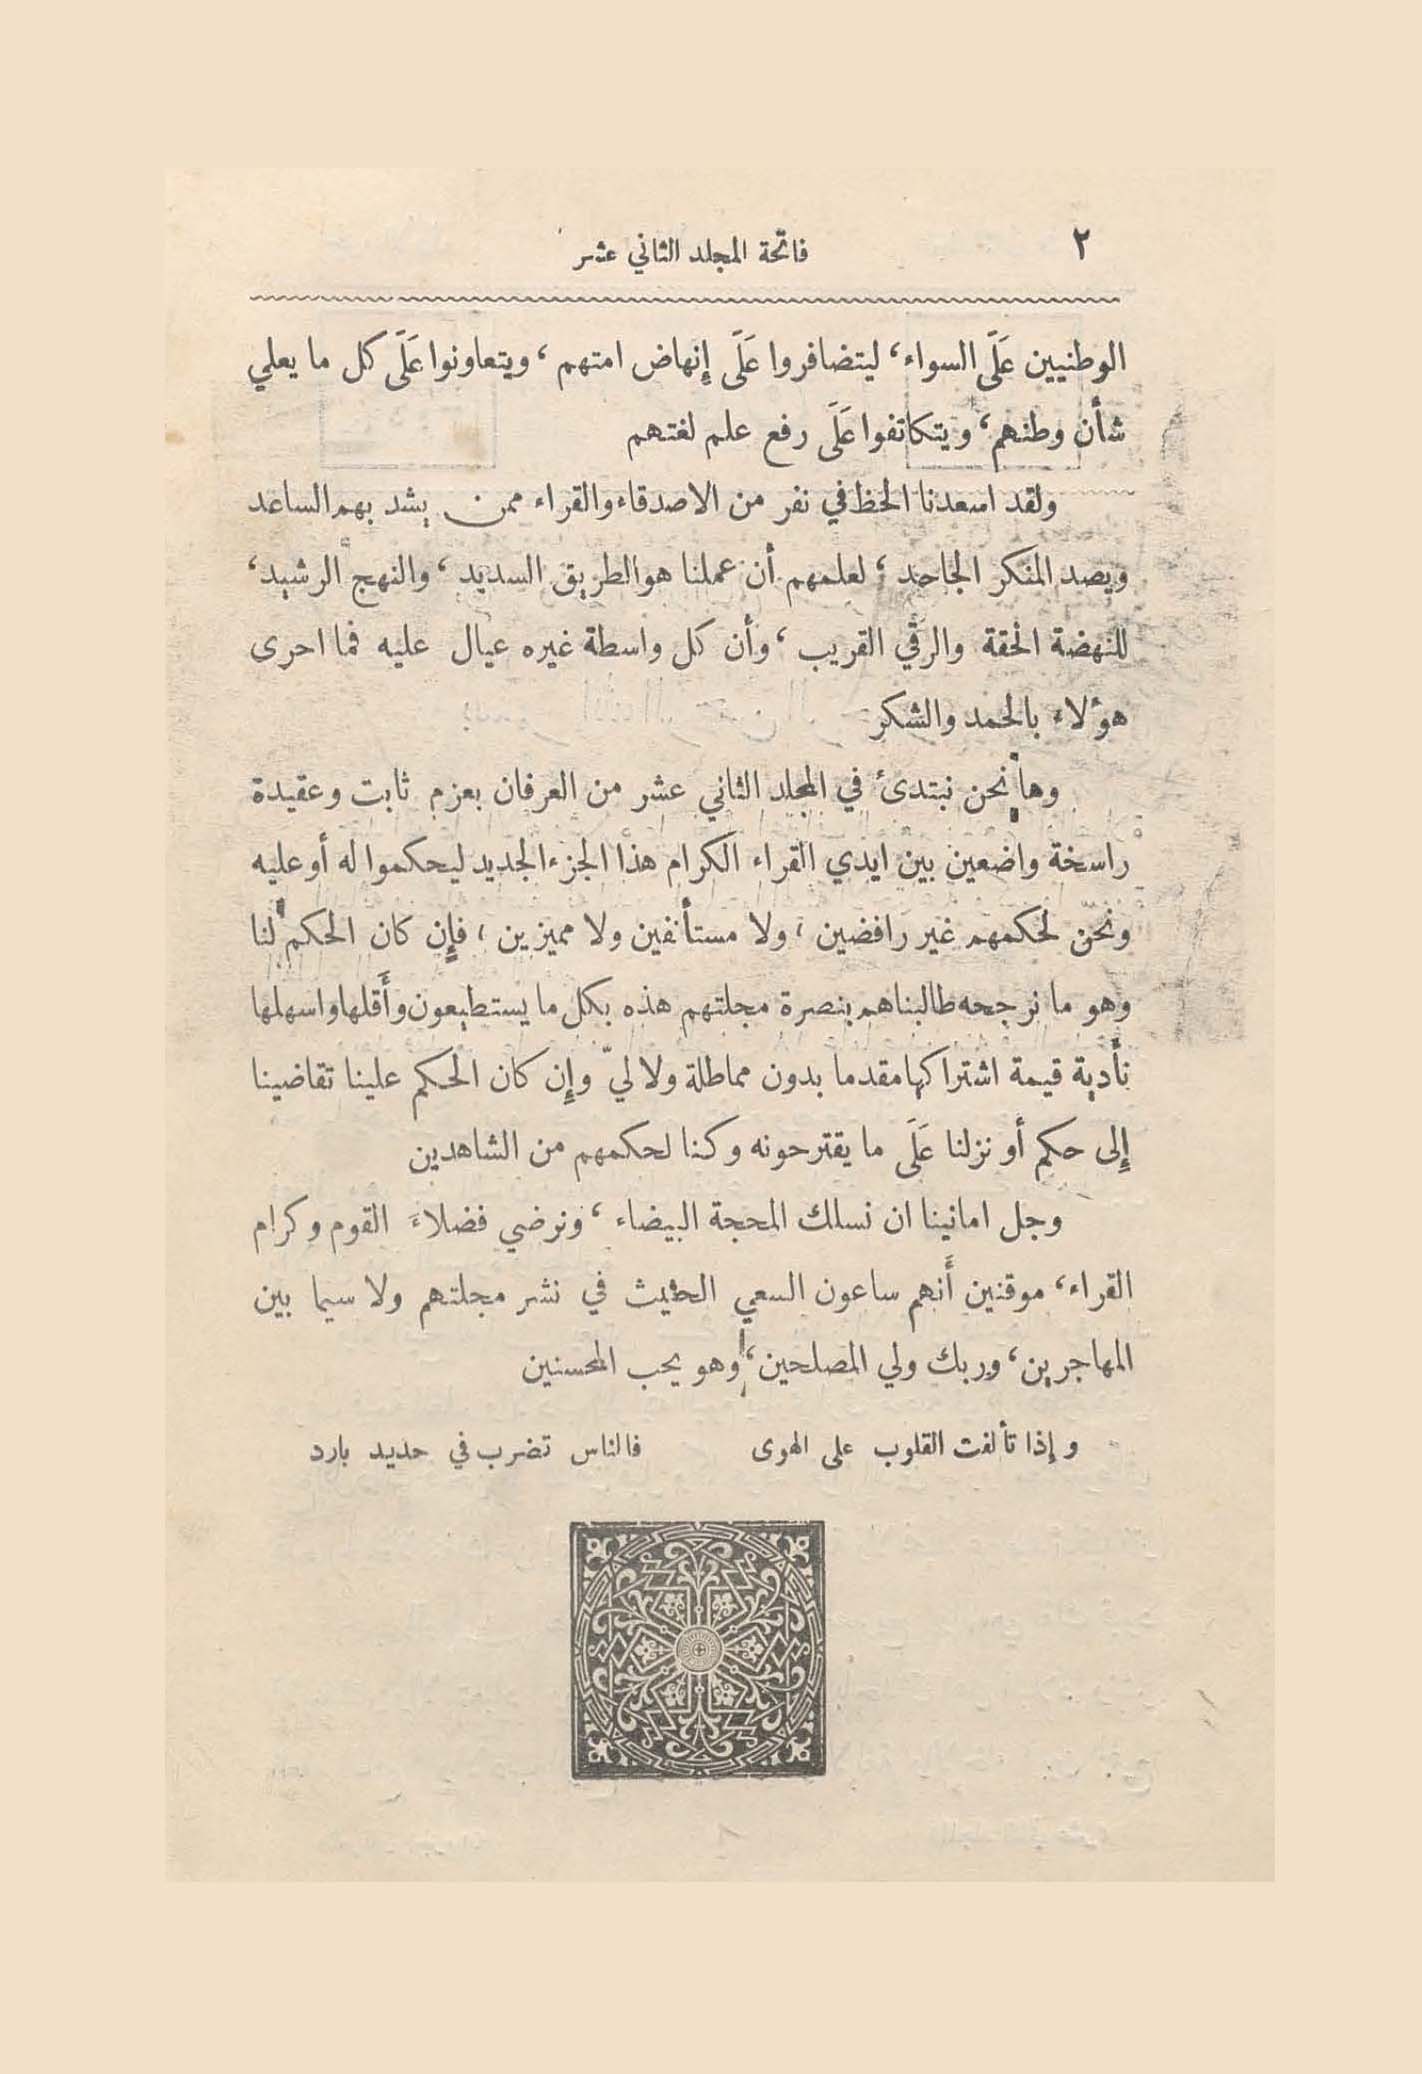 ٢
فاتحة المجلد الثاني عشر
الوطنيين عَلَى السواء، ليتضافروا عَلَى إِنهاض امتهم، ويتعاونوا عَلَى كل ما يعلي
شأن وطنهم، ويتكاتفوا عَلَى رفع علم لغتهم
ولقد اسعدنا الحظ في نفر من الاصدقاء والقراء ممن يشد بهم الساعد
ويصد المنكر الجاحد، لعلمهم أن عملنا هو الطريق السديد، والنهج الرشيد،
للنهضة الحقة والرقي القريب، وأن كل واسطة غيره عيال عليه فما احرى
هؤلاء بالحمد والشكر
وها نحن نبتدئ في المجلد الثاني عشر من العرفان بعزم ثابت وعقيدة
راسخة واضعين بين ايدي القراء الكرام هذا الجزء الجديد ليحكموا له أو عليه
ونحن لحكمهم غير رافضين، ولا مستأنفين ولا مميزين، فإِن كان الحكم لنا
وهو ما نرجحه طالبناهم بنصرة مجلتهم هذه بكل ما يستطيعون وأَقلها واسهلها
تأَدية قيمة اشتراكها مقدما بدون مماطلة ولا ليّ وإِن كان الحكم علينا تقاضينا
إِلى حكم أو نزلنا عَلَى ما يقترحونه وكنا لحكمهم من الشاهدين
وجل امانينا ان نسلك المحجة البيضاء، ونرضي فضلاءَ القوم وكرام
القراء، موقنين أَنهم ساعون السعي الحثيث في نشر مجلتهم ولا سيما بين
المهاجرين، وربك ولي المصلحين، وهو يحب المحسنين
وإذا تألفت القلوب على الهوى فالناس تضرب في حديد بارد